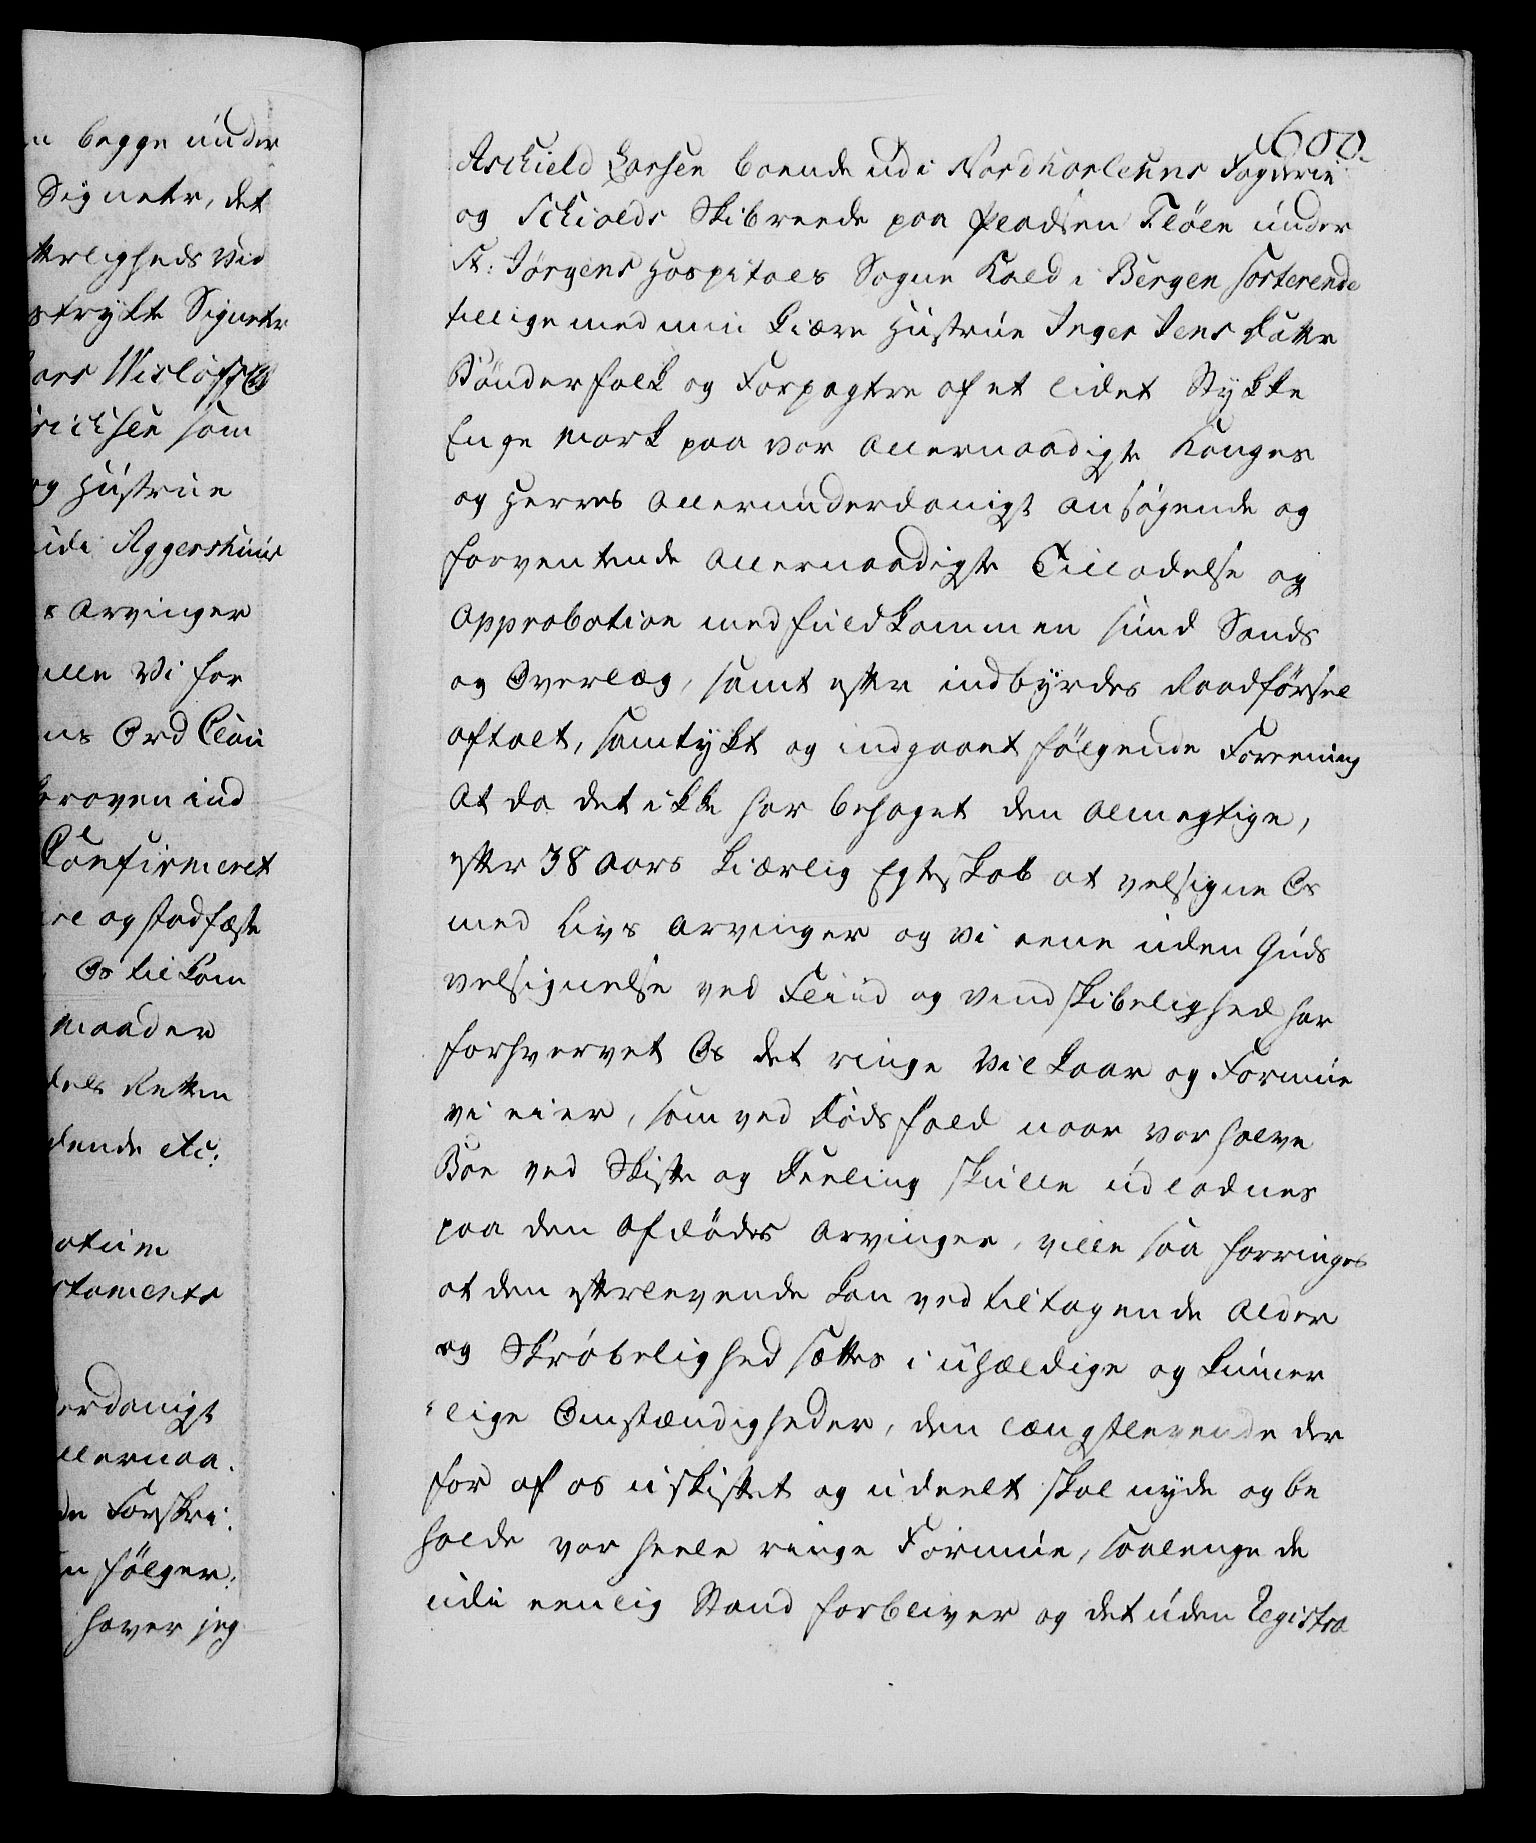 n begge under
Signete, det
tteligheds Vid
trykte Signete
Lars Wisløff
richsen som
og Hustrue
udi Aggershuus
s Arvinger
ille Vi for
ns Ord
heroven ind
Confirmeret
re og stadfæste
Os tilkom
maader
dels Retten
dende etc:
atum
staments
erdanigt
llernaa.
de Forskri.
n følger:
haver jeg
600.
Aschield Larsen boende udi Nordhorlehns Fogderie
og Schiolds Skibreede paa Pladsen Fløen under
St: Jørgens Hospitals Sogne Kald i Bergen sorterende
tillige med min kiære Hustrue Inger Jens Datter
Bønderfolk og Forpagtere af et lidet Stykke
Enge Mark paa vor Allernaadigste Konges
og Herres Allerunderdanigst ansøgende og
forventende Allernaadigste Tilladelse og
Approbation med fuldkommen sund Sands
og Overlæg, samt efter indbyrdes Raadførsel
aftalt, samtykt og indgaaet følgende Foreening
At da det ikke har behaget den Almegtige,
efter 38 Aars kiærlig Egteskab at velsigne Os
med Livs Arvinger og vi eene uden Guds
velsignelse ved Fliid og Vindskibelighed har
forhvervet Os det ringe Vilkaar og Formue
vi eier, som ved Dødsfald naar vor halve
Boe ved Skifte og Deeling skulle udlodnes
paa den Afdødes Arvinger, ville saa forringes
at den efterlevende kan ved tiltagende Alder
og Skrøbelighed sættes i uhældige og kummer
lige Omstændigheder, den længstlevende der
for af os uskiftet og udeelt skal nyde og be
holde vor heele ringe Formue, saalenge de
udi eenlig Stand forbliver og det uden Registra